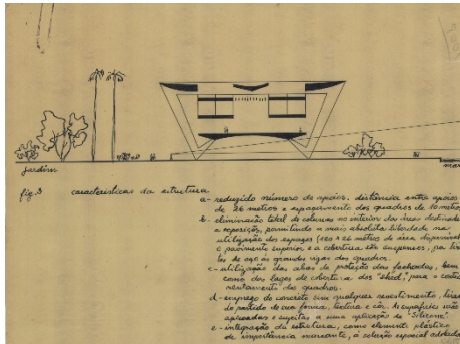 jardim
mar
fig. 3 características da estrutura
a- reduzido número de apoios, distância entre apoios
de 26 metros e espaçamento dos quadros de 10 metros
b- eliminação total de colunas no interior da área destinada
a exposições, permitindo a mais absoluta liberdade na
utilização dos espaços (130 x 26 metros de área disponível
o pavimento superior e a cobertura são suspensos, por
de aço às grandes vigas dos quadros.
c- utilização das abas de proteção das fachadas, bem
como das lages de cobertura dos "shed", para o contra
ventamento dos quadros.
d- emprego do concreto sem qualquer revestimento,
do partido de sua forma, textura e côr. As superfícies serão
aplicadas e sujeitas a uma aplicação de "Silicone".
e- integração da estrutura, como elemento plástico
de importância marcante, à solução espacial adotada